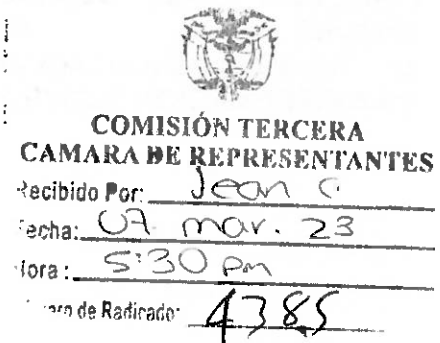 COMISIÓN TERCERA
CAMARA DE REPRESENTANTES
Recibido Por: Jean C
Fecha: 07 mar. 23
Hora: 5:30 pm
de Radicado: 4385